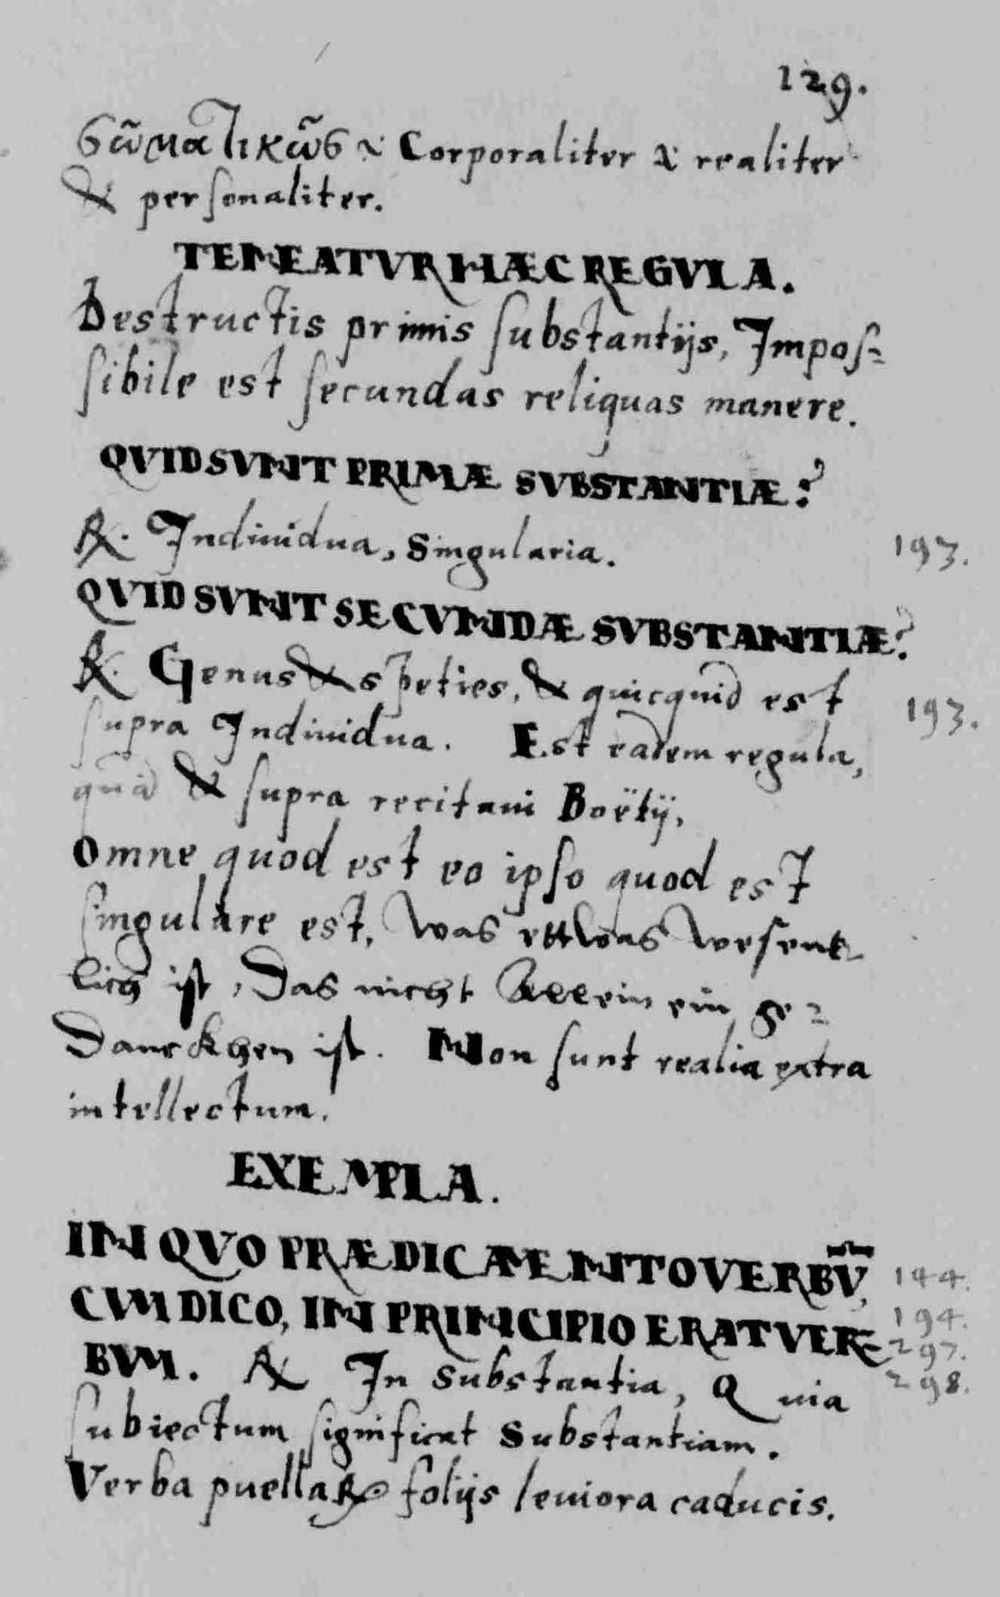 129.
σω̃ματικω̃ς ⁊ Corporaliter ⁊ realiter
& personaliter.
TENEATVR HÆC REGVLA.
Destructis primis substantijs, Impos=
sibile est secundas reliquas manere.
QVID SVNT PRIMÆ SVBSTANTIÆ?
℞. Indiuidua, Singularia. 193.
QVID SVNT SECVNDÆ SVBSTANTIÆ?
℞. Genus & speties, & quicquid est
supra Indiuidua. Est eadem regula, 193.
& supra recitaui Boëtij,
Omne quod est eo ipso quod est
singulare est, Was ettwas wesent=
lich ist, Das nicht Allein ein ge=
Danckhen ist. Non sunt realia extra
intellectum.
EXEMPLA.
IN QVO PRÆDICAMENTO VERBV̄, 144.
CVM DICO, IN PRINCIPIO ERAT VER= 194.
297.
BVM. ℞ In Substantia, Quia 298.
subiectum significat Substantiam.
Verba puellaꝝ folijs leuiora caducis.